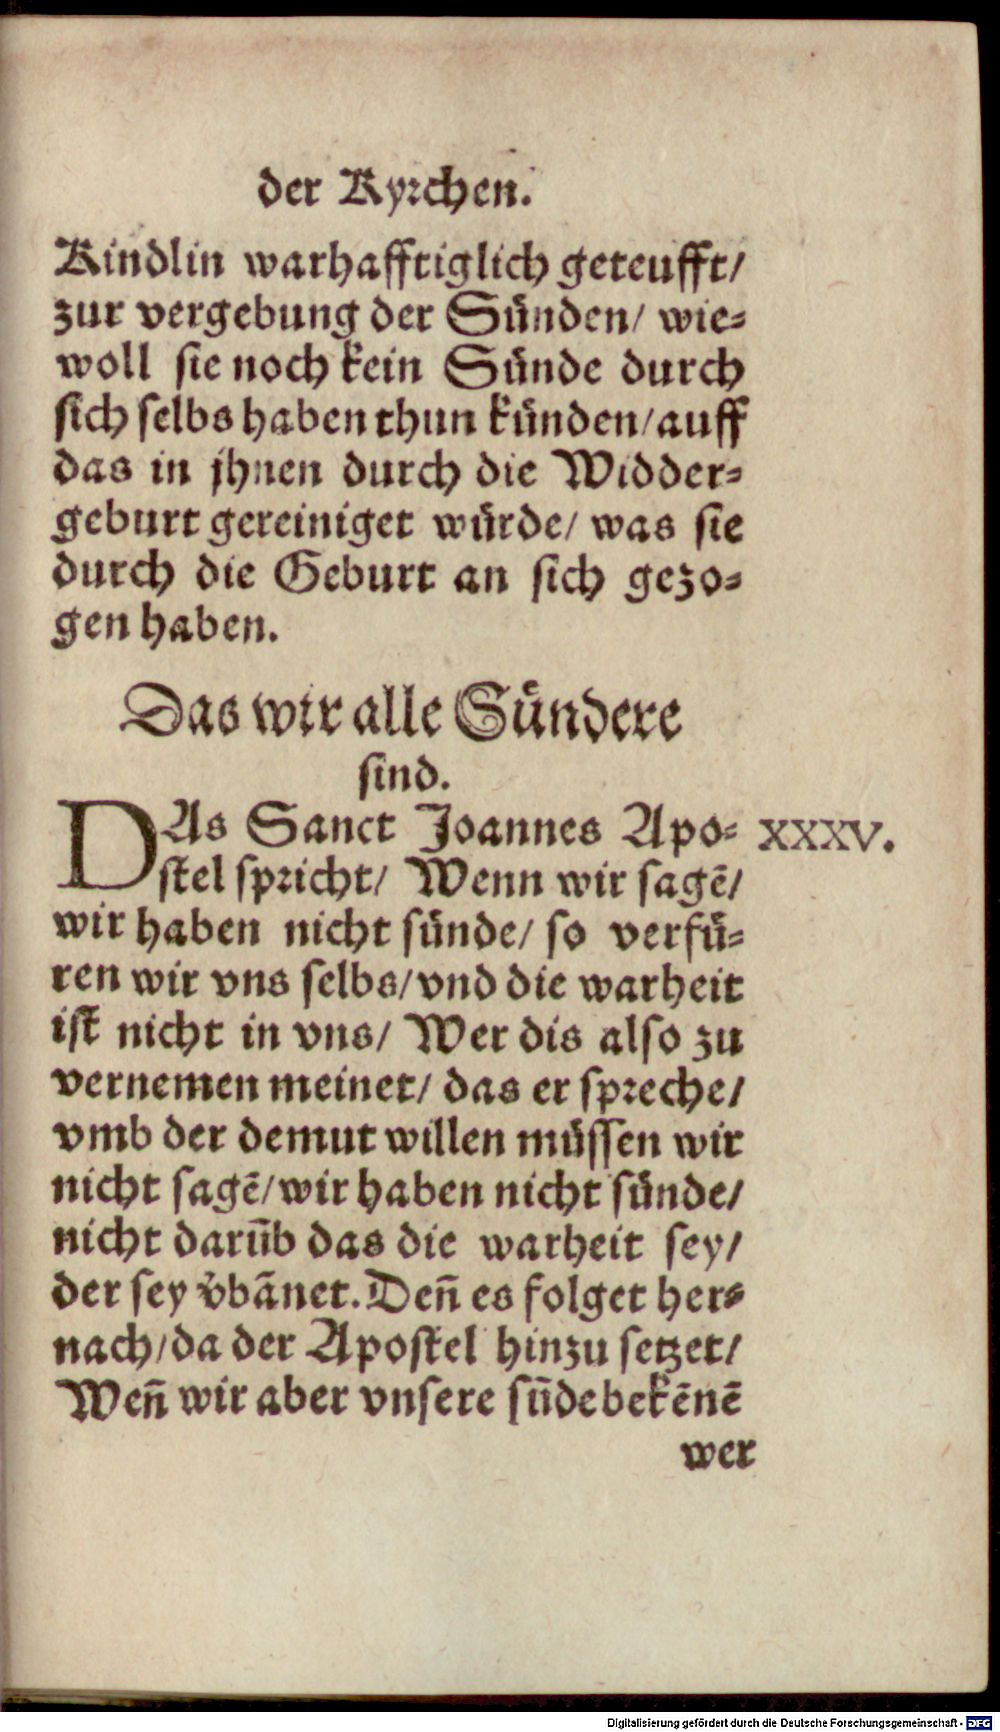 der Kyrchen.
Kindlin warhafftiglich geteufft/
zur vergebung der Sünden/ wie-
woll sie noch kein Sünde durch
sich selbs haben thun künden/auff
das in jhnen durch die Widder-
geburt gereiniget würde/ was sie
durch die Geburt an sich gezo-
gen haben.
Das wir alle Sündere
sind.
DAs Sanct Joannes Apo- XXXV.
stel spricht/ Wenn wir sagē/
wir haben nicht sünde/ so verfü-
ren wir vns selbs/vnd die warheit
ist nicht in vns/ Wer dis also zu
vernemen meinet/ das er spreche/
vmb der demut willen müssen wir
nicht sagē/wir haben nicht sünde/
nicht darūb das die warheit sey/
der sey v̄bānet. Deñ es folget her-
nach/da der Apostel hinzu setzet/
Weñ wir aber vnsere sūde bekēnē
wer
Digitalisierung gefördert durch die Deutsche Forschungsgemeinschaft - DFG